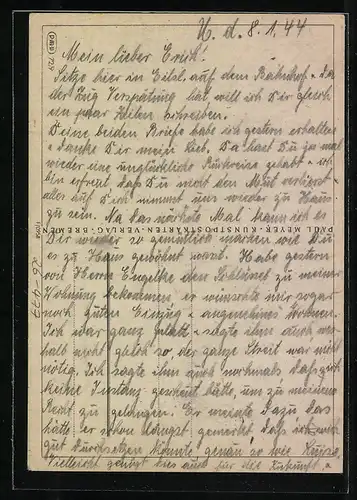 U. d. 8.1.44
Mein lieber Erich!
Sitze hier in Eilsl. auf dem Bahnhof. Da
der Zug Verspätung hat will ich Dir gleich
ein paar Zeilen schreiben.
Deine beiden Briefe habe ich gestern erhalten
danke Dir mein Lieb. Da hast Du ja mal
wieder eine unglückliche Rückreise gehabt. ich
bin erfreut daß Du nicht den Mut verlierst
alles auf Dich nimmst uns wieder zu Haus
zu sein. Na das nächste Mal kann ich es
Dir wieder so gemütlich machen wie Du
es zu Haus gewohnt warst. Habe gestern
von Herrn Engeltke den Schlüssel zu meiner
Wohnung bekommen er wünschte mir sogar
noch guten Einzug + angenehmes Wohnen.
Ich war ganz platt + sagte ihm auch
nicht gleich so der ganze Streit war nicht
nötig. Ich sagte ihm auch nochmals daß ich
keine Instanz gescheut hätte, um zu meinem
Recht zu gelangen. Er meinte dazu das
hätte er schon längst gemerkt daß ich mich
gut durchsetzen könnte genau so wie
Vielleicht genügt dies auch für die Zukunft.
PAUL MEYER · KUNSTPOSTKARTEN-VERLAG · BREMEN